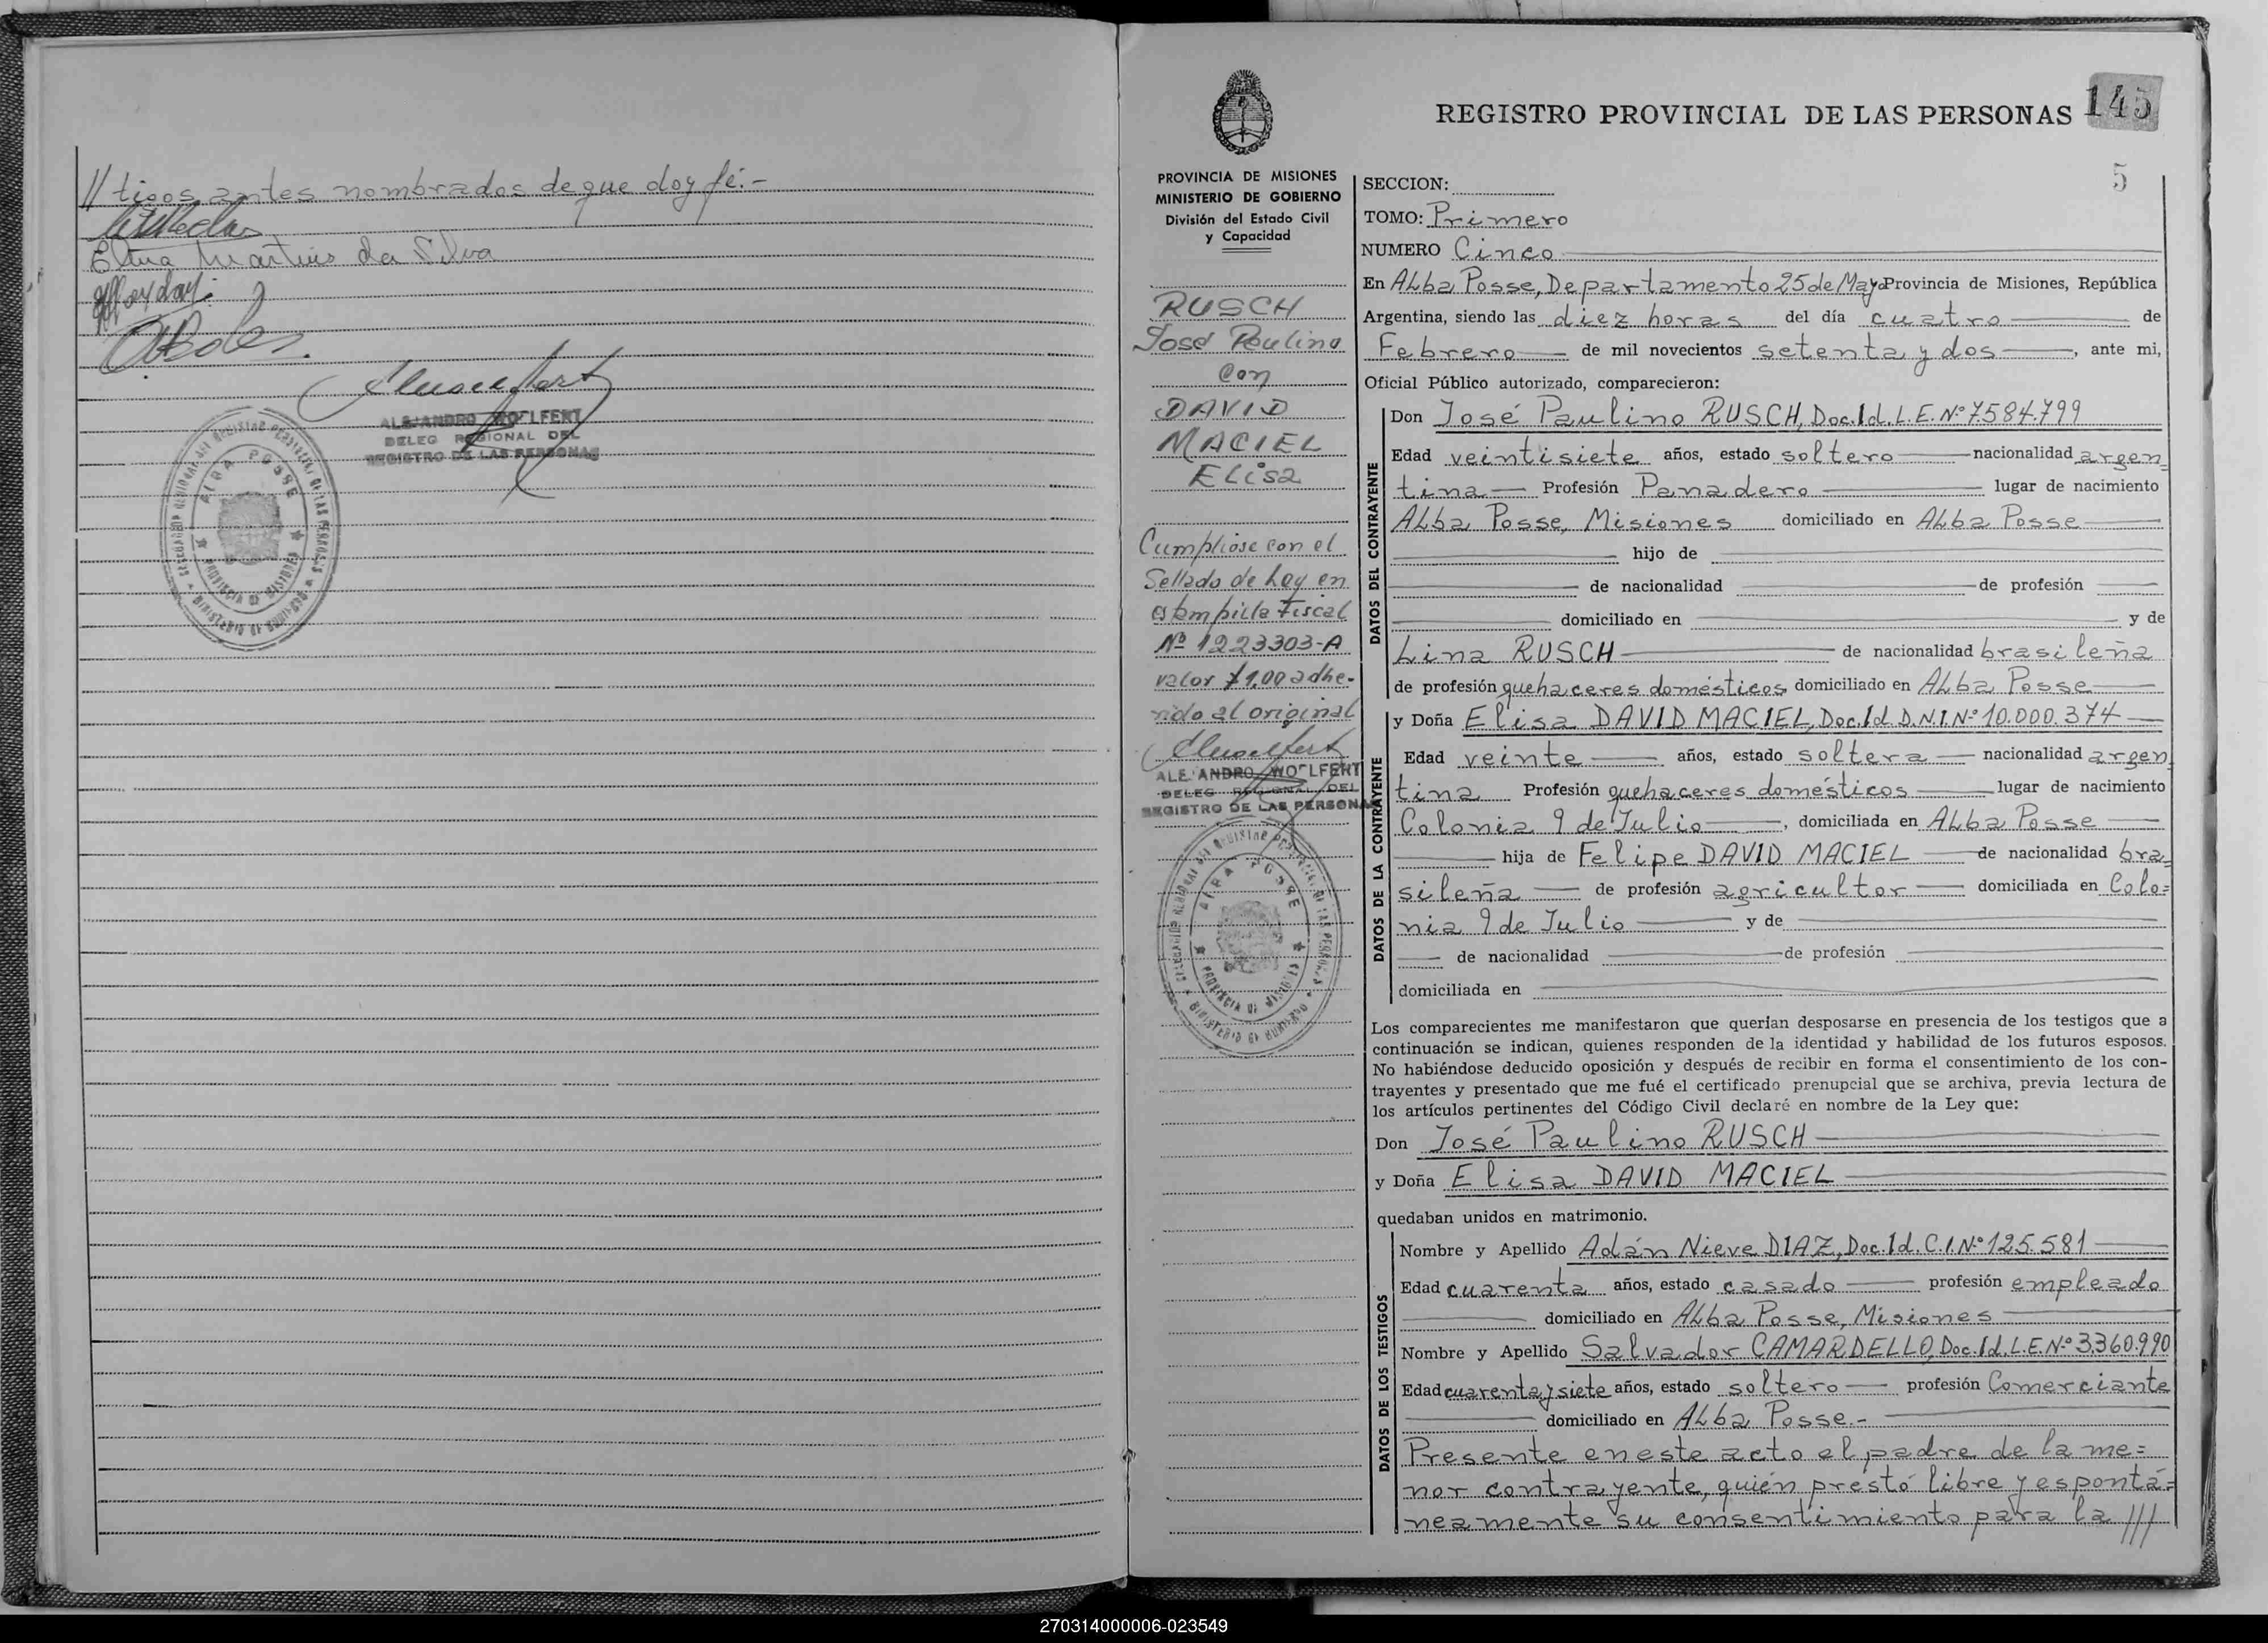 // tigos antes nombrados de que doy fé.-
Elma Martins da Silva
ALEJANDRO WOELFERT
DELEG REGIONAL DEL
REGISTRO DE LAS PERSONAS
ALBA POSSE
PROVINCIA DE MISIONES
REGISTRO PROVINCIAL DE LAS PERSONAS 145
5
PROVINCIA DE MISIONES
MINISTERIO DE GOBIERNO
División del Estado Civil
y Capacidad
RUSCH
José Paulino
con
DAVID
MACIEL
Elisa
Cumpliose con el
Sellado de Ley en
estampilla Fiscal
Nº 1223303-A
valor $1.00 adhe-
rido al original
ALEJANDRO WOELFERT
DELEG REGIONAL DEL
REGISTRO DE LAS PERSONAS
ALBA POSSE
PROVINCIA DE MISIONES
SECCION:
TOMO: Primero
NUMERO Cinco
En Alba Posse, Departamento 25 de Mayo Provincia de Misiones, República
Argentina, siendo las diez horas del día cuatro de
Febrero de mil novecientos setenta y dos, ante mi,
Oficial Público autorizado, comparecieron:
DATOS DEL CONTRAYENTE
Don José Paulino RUSCH, Doc.Id. L.E. Nº 7.584.799
Edad veintisiete años, estado soltero nacionalidad argen=
tina Profesión Panadero lugar de nacimiento
Alba Posse, Misiones domiciliado en Alba Posse
hijo de
de nacionalidad de profesión
domiciliado en y de
Lina RUSCH de nacionalidad brasileña
de profesión quehaceres domésticos domiciliado en Alba Posse
DATOS DE LA CONTRAYENTE
y Doña Elisa DAVID MACIEL, Doc.Id. D.N.I. Nº 10.000.374
Edad veinte años, estado soltera nacionalidad argen
tina Profesión quehaceres domésticos lugar de nacimiento
Colonia 9 de Julio, domiciliada en Alba Posse
hija de Felipe DAVID MACIEL de nacionalidad bra=
sileña de profesión agricultor domiciliada en Colo=
nia 9 de Julio y de
de nacionalidad de profesión
domiciliada en
Los comparecientes me manifestaron que querían desposarse en presencia de los testigos que a
continuación se indican, quienes responden de la identidad y habilidad de los futuros esposos.
No habiéndose deducido oposición y después de recibir en forma el consentimiento de los con-
trayentes y presentado que me fué el certificado prenupcial que se archiva, previa lectura de
los artículos pertinentes del Código Civil declaré en nombre de la Ley que:
Don José Paulino RUSCH
y Doña Elisa DAVID MACIEL
quedaban unidos en matrimonio.
DATOS DE LOS TESTIGOS
Nombre y Apellido Adán Nieve DIAZ, Doc.Id. C.I. Nº 125.581
Edad cuarenta años, estado casado profesión empleado
domiciliado en Alba Posse, Misiones
Nombre y Apellido Salvador CAMARDELLO, Doc.Id. L.E. Nº 3.360.990
Edad cuarenta y siete años, estado soltero profesión Comerciante
domiciliado en Alba Posse.-
Presente en este acto el padre de la me=
nor contrayente, quién prestó libre y espontá=
neamente su consentimiento para la ///
270314000006-023549